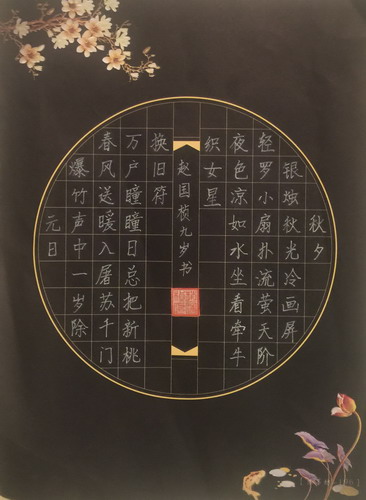 秋夕
银烛秋光冷画屏
轻罗小扇扑流萤天阶
夜色凉如水坐看牵牛
织女星
元日
爆竹声中一岁除
春风送暖入屠苏千门
万户瞳瞳日总把新桃
换旧符
赵国桢九岁书